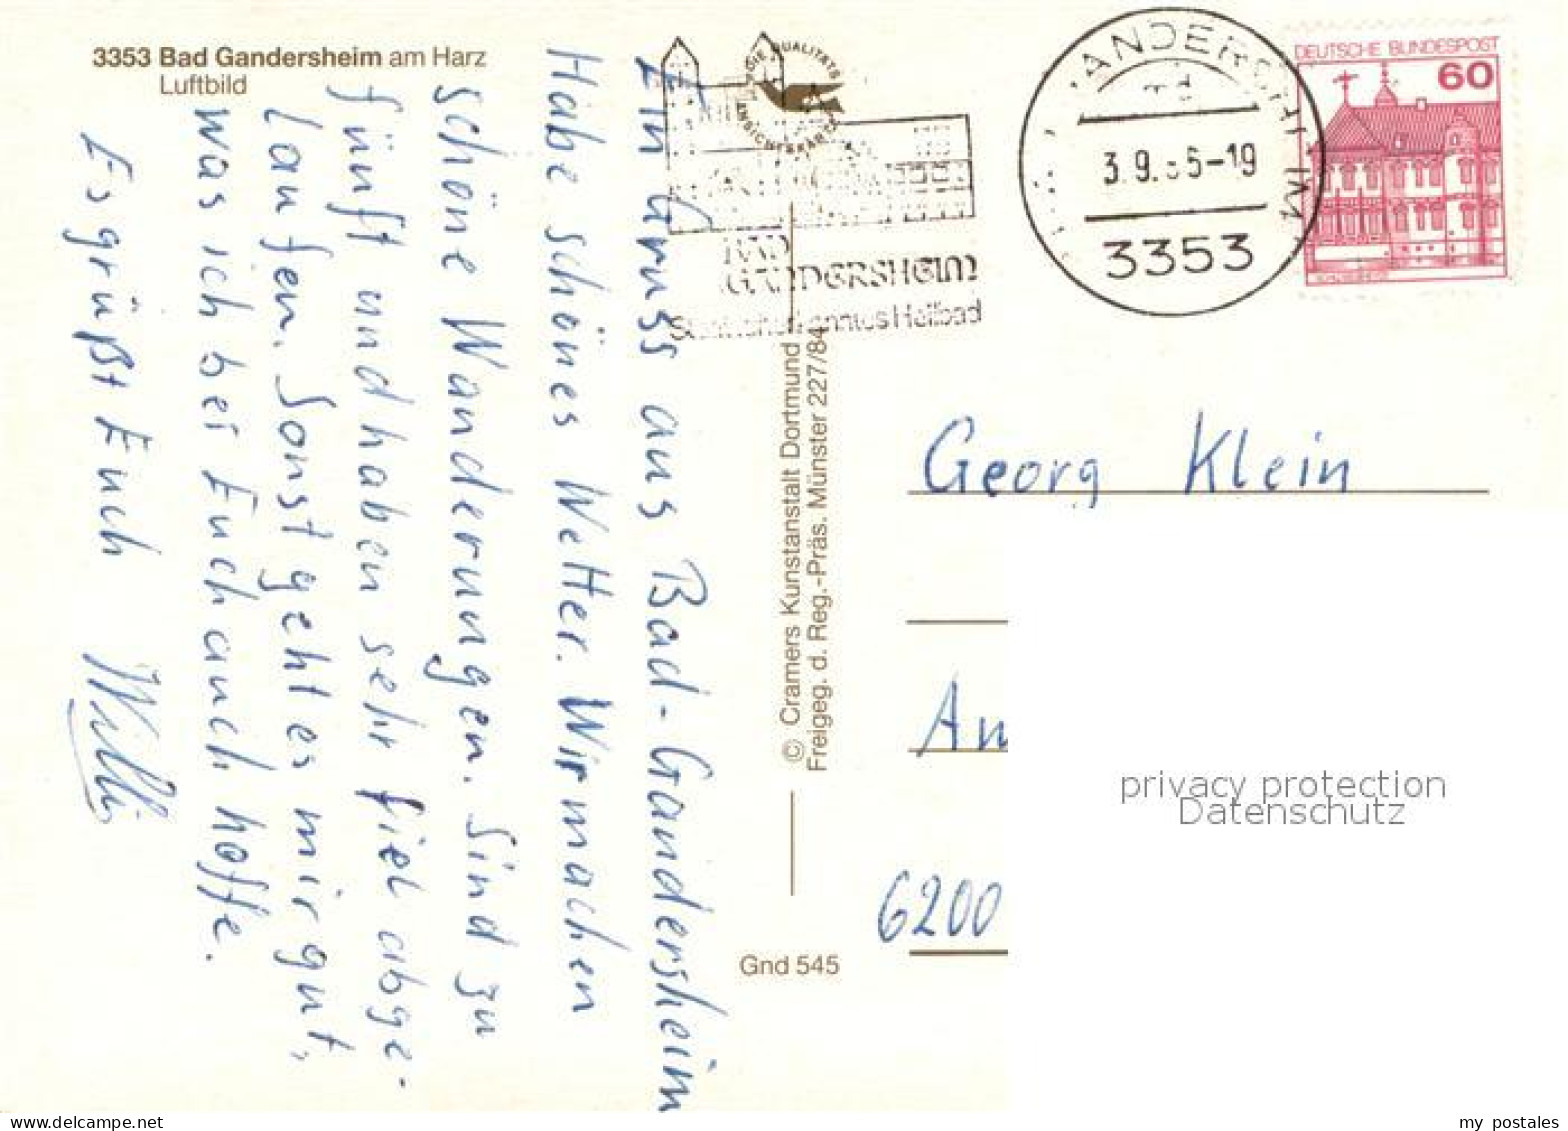 3353 Bad Gandersheim am Harz
Luftbild
Ein Gruss aus Bad-Gandersheim
Habe schönes Wetter. Wir machen
schöne Wanderungen. Sind zu
fünft und haben sehr fiel abge-
laufen. Sonst geht es mir gut,
was ich bei Euch auch hoffe.
Es grüßt Euch Willi
DIE QUALITÄTS
ANSICHTSKARTE
BAD
GANDERSHEIM
Heilbad
© Cramers Kunstanstalt Dortmund
Freigeg. d. Reg.-Präs. Münster 227/84
Gnd 545
3.9. 6-19
3353
DEUTSCHE BUNDESPOST
60
Georg Klein
An
6200
privacy protection
Datenschutz
my postales